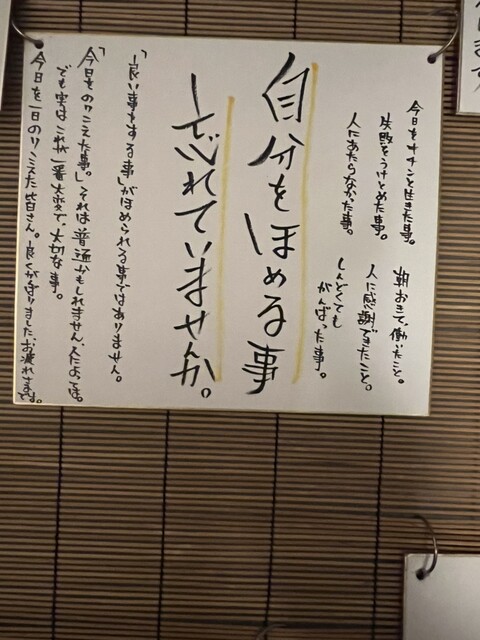 今日をキチンと生きた事。
失敗をうけとめた事。
人にあたらなかった事。
朝おきて、働いたこと。
人に感謝できたこと。
しんどくても
がんばった事。
自分をほめる事
忘れていませんか。
「良い事をする事」がほめられる事ではありません。
「今日をのりこえた事。」それは普通かもしれません、人によっては。
でも実はこれが一番大変で、大切な事。
今日を一日のりこえた皆さん。良くがんばりました、お疲れさまです。